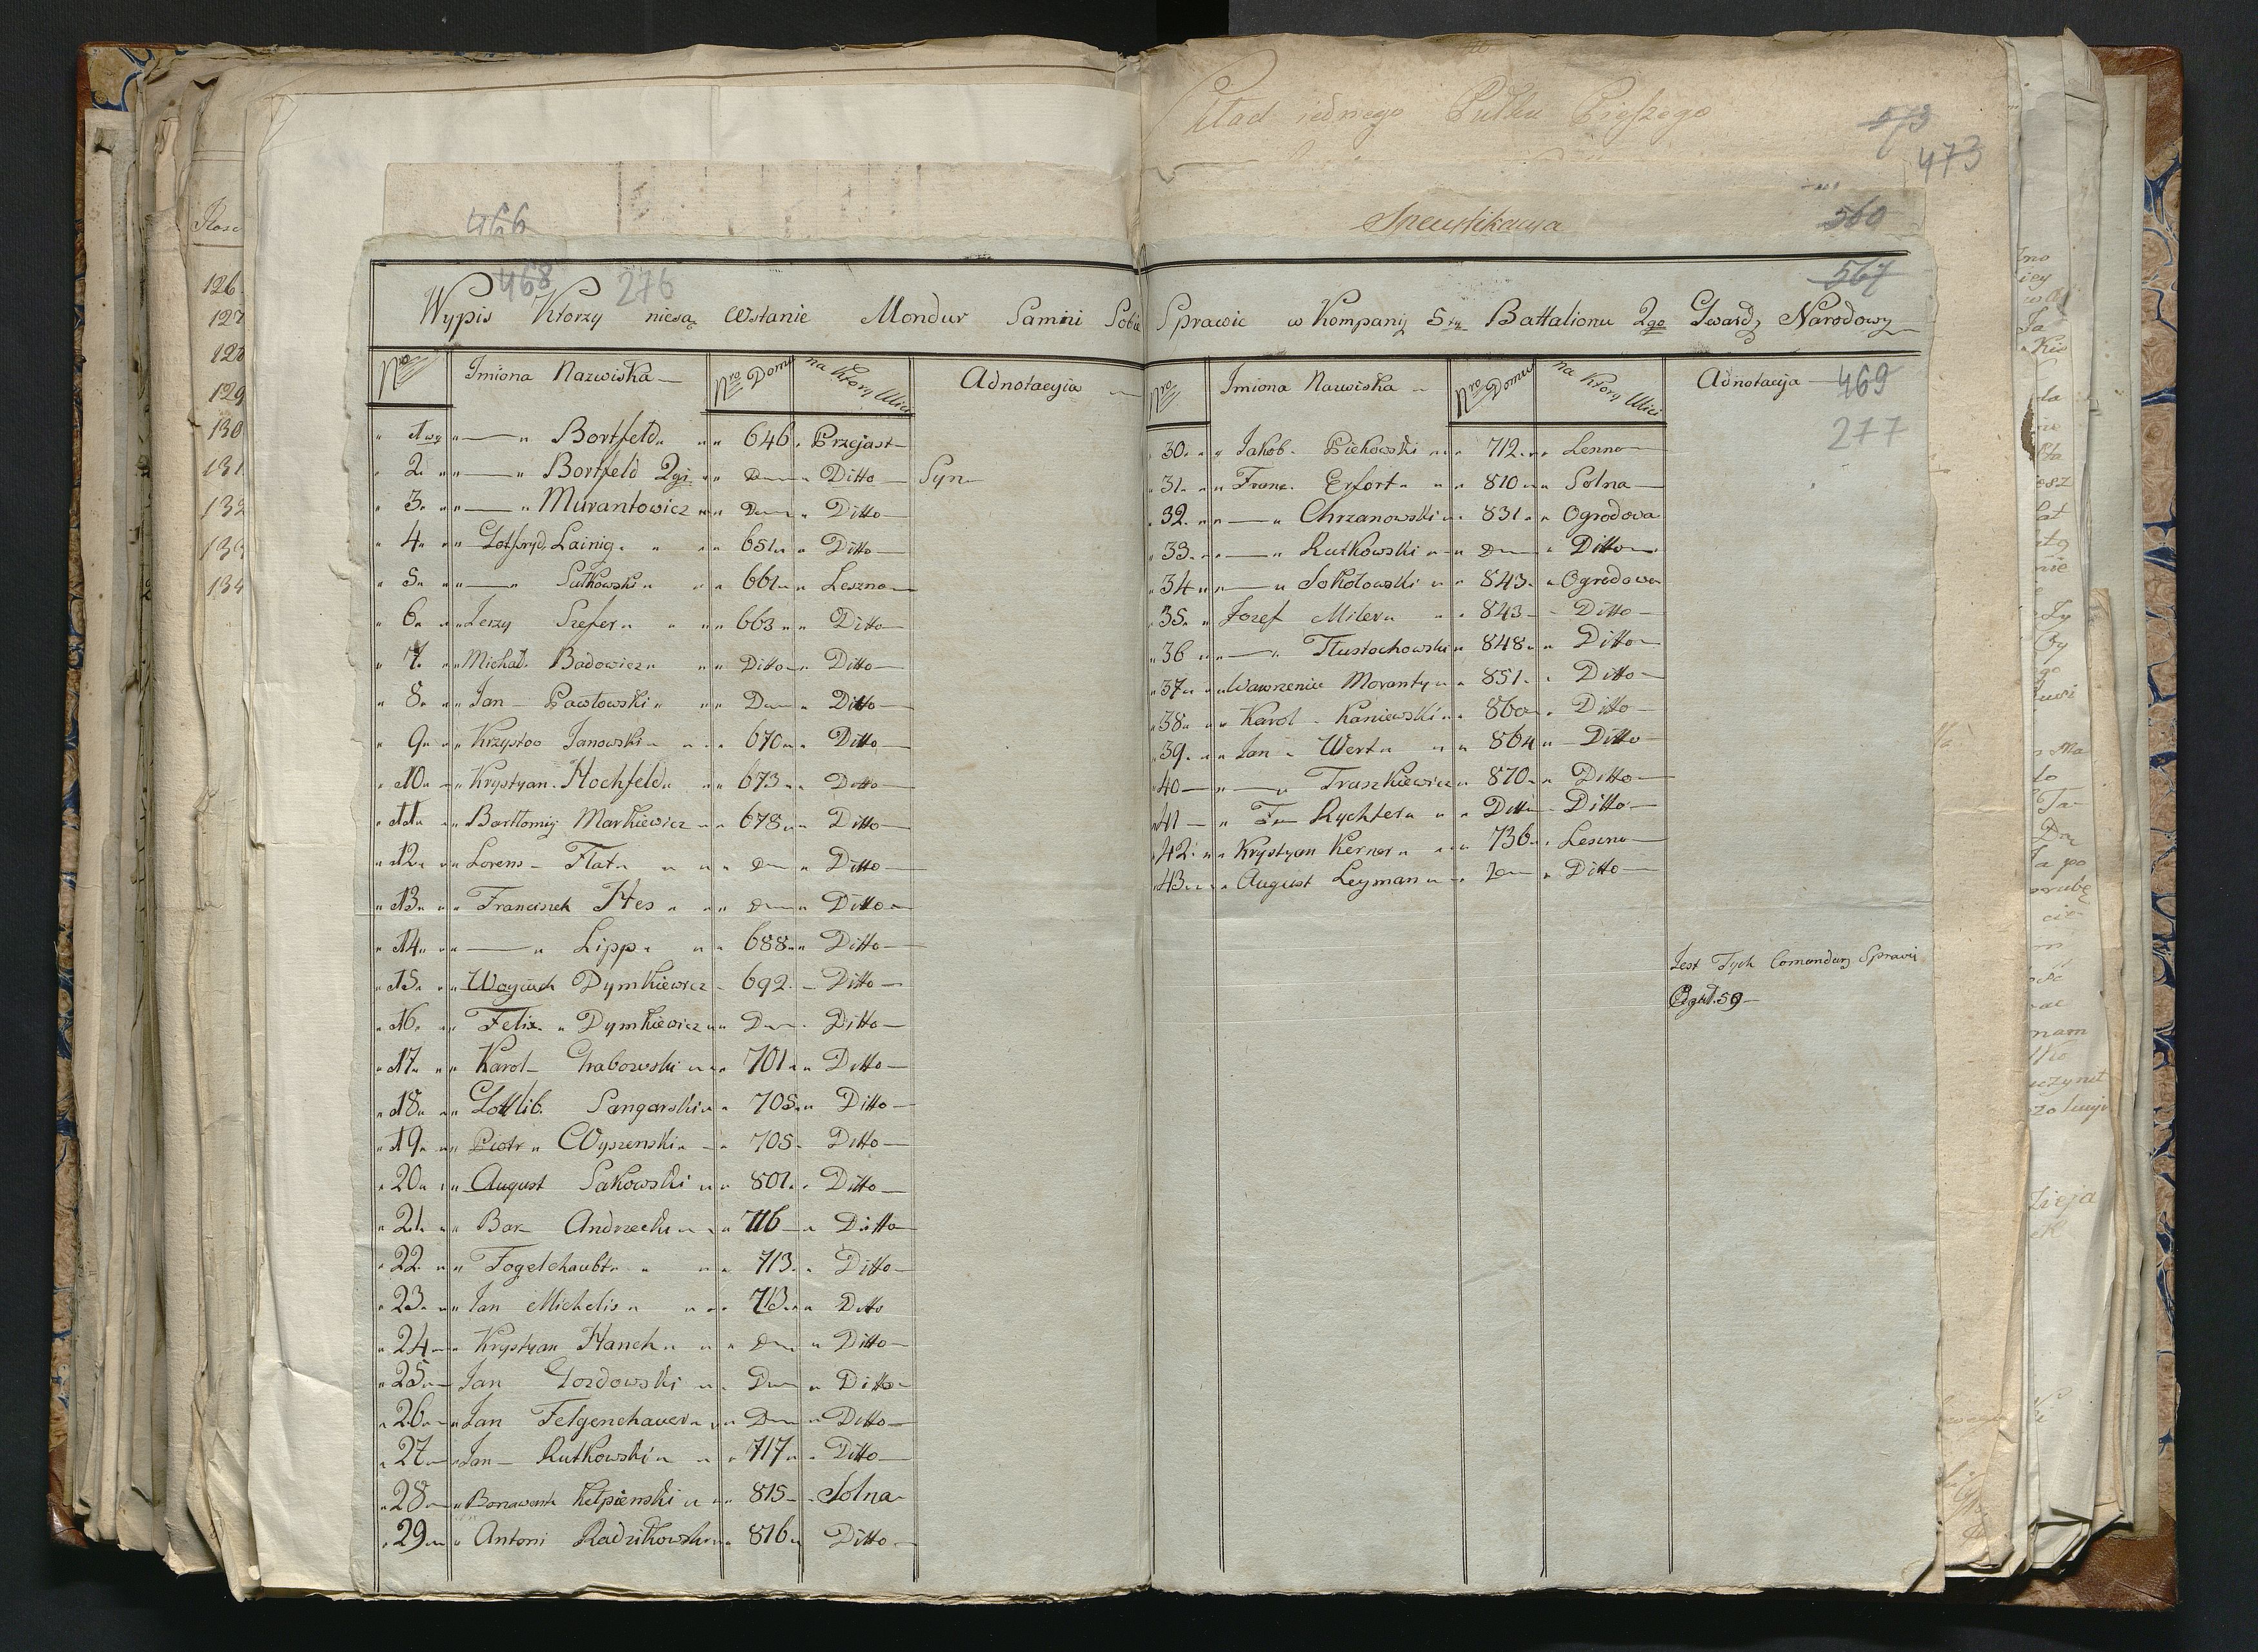 Kład iednego Pułku Pieszego
573
473
466
Specyfikacya
560
468 276
567
Wypis Ktorzy niesą wstanie Mondur Samni Sobie Sprawic w Kompanij 5tej Battalionu 2go Gwardj Narodowy
Nro Imiona Nazwiska Nro Domu na Ktory Ulici Adnotacyia
1wy — Bortfeld 646 Przejast
2 — Bortfeld 2gi Dm Ditto Syn
3 — Murantowicz Dm Ditto
4 Gotfryd Lainig 651 Ditto
5 — Sutkowski 661 Leszno
6 Jerzy Szefer 663 Ditto
7 Michał Badowicz Ditto Ditto
8 Jan Pawłowski Dm Ditto
9 Krzystoo Janowski 670 Ditto
10 Krystyan Hochfeld 673 Ditto
11 Bartłomij Markiewicz 678 Ditto
12 Lorens Flat Dm Ditto
13 Franciszek Hes Dm Ditto
14 — Lipp 688 Ditto
15 Woyciech Dymkiewicz 692 Ditto
16 Felix Dymkiewicz Dm Ditto
17 Karol Grabowski 701 Ditto
18 Gottlib Sangarski 705 Ditto
19 Piotr Wyszenski 705 Ditto
20 August Sakowski 801 Ditto
21 Bar Andrzecki 716 Ditto
22 Fogelchaubt 713 Ditto
23 Jan Michelis 713 Ditto
24 Krystyan Hanch Dm Ditto
25 Jan Gozdowski Dm Ditto
26 Jan Felgenchauer Dm Ditto
27 Jan Rutkowski 717 Ditto
28 Bonawent Kełpienski 815 Solna
29 Antoni Radzikowski 816 Ditto
Nro Imiona Nazwiska Nro Domu na Ktory Ulici Adnotacija 469
277
30 Jakob Piekowski 712 Lenno
31 Franc. Erfort 810 Solna
32 — Chrzanowski 831 Ogrodowa
33 — Rutkowski Dm Ditto
34 — Sokołowski 843 Ogrodowa
35 Jozef Miler 843 Ditto
36 — Tłustochowski 848 Ditto
37 Wawrzeniec Moranty 851 Ditto
38 Karol Kaniewski 860 Ditto
39 Jan Wert 864 Ditto
40 — Truszkiewicz 870 Ditto
41 Fr Rychter Ditto Ditto
42 Krystyan Kerner 736 Leszno
43 August Leyman Dm Ditto
Jest Tych Comendary Sprawii
Eght. 59
Ilosc
126
127
128
129
130
131
132
133
134